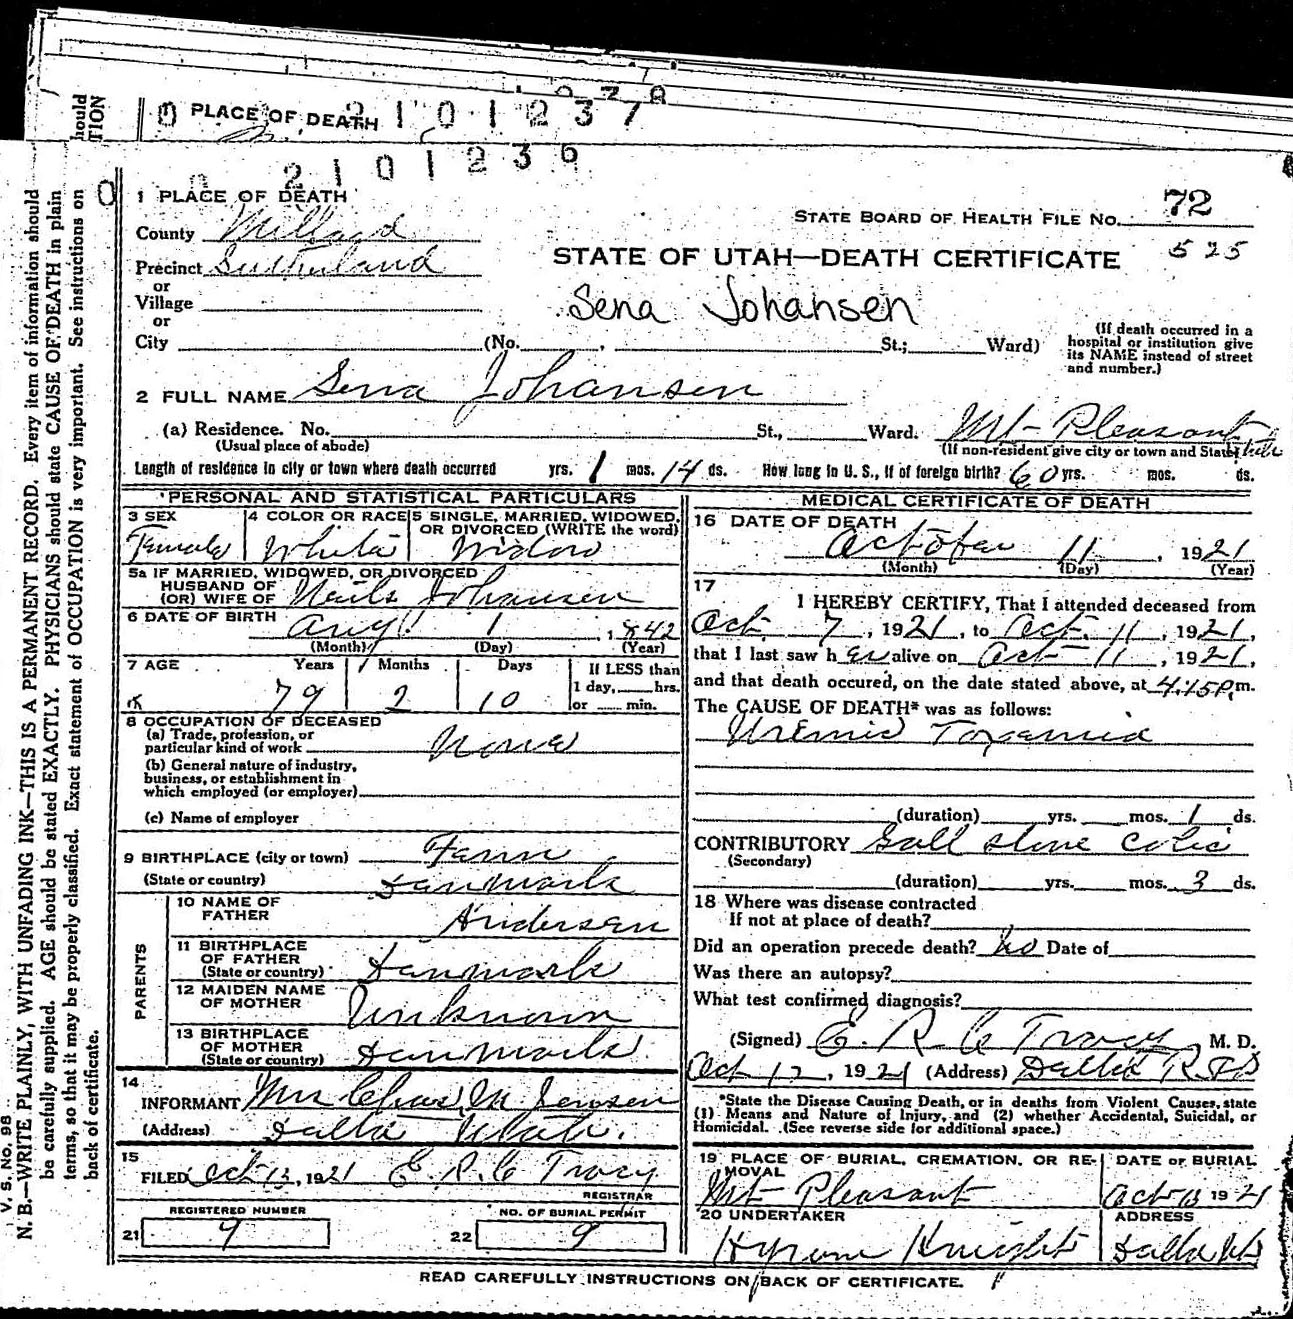 hould
TION
0 PLACE OF DEATH 2101237
0 0 2101236
1 PLACE OF DEATH
County Millard
Precinct Sutherland
or
Village
or
City (No. , St.; Ward)
STATE BOARD OF HEALTH FILE NO. 72
525
STATE OF UTAH—DEATH CERTIFICATE
Sena Johansen
(If death occurred in a
hospital or institution give
its NAME instead of street
and number.)
2 FULL NAME Sena Johansen
(a) Residence. No. St., Ward. Mt Pleasant Utah
(Usual place of abode) (If non-resident give city or town and State)
Length of residence in city or town where death occurred yrs. 1 mos. 14 ds. How long in U. S., if of foreign birth? 60 yrs. mos. ds.
PERSONAL AND STATISTICAL PARTICULARS
3 SEX Female
4 COLOR OR RACE White
5 SINGLE, MARRIED, WIDOWED,
OR DIVORCED (WRITE the word)
Widow
5a IF MARRIED, WIDOWED, OR DIVORCED
HUSBAND OF
(OR) WIFE OF Neils Johansen
6 DATE OF BIRTH Aug. 1, 1842
(Month) (Day) (Year)
7 AGE Years Months Days If LESS than
1 day, hrs.
79 2 10 or min.
8 OCCUPATION OF DECEASED
(a) Trade, profession, or
particular kind of work None
(b) General nature of industry,
business, or establishment in
which employed (or employer)
(c) Name of employer
9 BIRTHPLACE (city or town)
(State or country) Danmark
PARENTS
10 NAME OF
FATHER Andersen
11 BIRTHPLACE
OF FATHER
(State or country) Danmark
12 MAIDEN NAME
OF MOTHER Unknown
13 BIRTHPLACE
OF MOTHER
(State or country) Danmark
14
INFORMANT Mrs Chas. M Jensen
(Address) Delta Utah.
15
FILED Oct 13, 1921 E. R. C Tracy
REGISTRAR
REGISTERED NUMBER
21 9
NO. OF BURIAL PERMIT
22 9
MEDICAL CERTIFICATE OF DEATH
16 DATE OF DEATH
October 11, 1921
(Month) (Day) (Year)
17
I HEREBY CERTIFY, That I attended deceased from
Oct. 7, 1921, to Oct. 11, 1921,
that I last saw her alive on Oct 11, 1921,
and that death occured, on the date stated above, at 4:15 P. m.
The CAUSE OF DEATH* was as follows:
Uremic Toxemia
(duration) yrs. mos. 1 ds.
CONTRIBUTORY Gall stone colic
(Secondary)
(duration) yrs. mos. 3 ds.
18 Where was disease contracted
If not at place of death?
Did an operation precede death? No Date of
Was there an autopsy?
What test confirmed diagnosis?
(Signed) E. R. C Tracy M. D.
Oct 12, 1921 (Address) Delta RFD
*State the Disease Causing Death, or in deaths from Violent Causes, state
(1) Means and Nature of Injury, and (2) whether Accidental, Suicidal, or
Homicidal. (See reverse side for additional space.)
19 PLACE OF BURIAL, CREMATION, OR RE-
MOVAL
Mt Pleasant
DATE OF BURIAL
Oct 13 1921
20 UNDERTAKER
Hyrum Knight
ADDRESS
Delta Ut
READ CAREFULLY INSTRUCTIONS ON BACK OF CERTIFICATE.
V. S. No. 98
N. B.—WRITE PLAINLY, WITH UNFADING INK—THIS IS A PERMANENT RECORD. Every item of information should
be carefully supplied. AGE should be stated EXACTLY. PHYSICIANS should state CAUSE OF DEATH in plain
terms, so that it may be properly classified. Exact statement of OCCUPATION is very important. See instructions on
back of certificate.